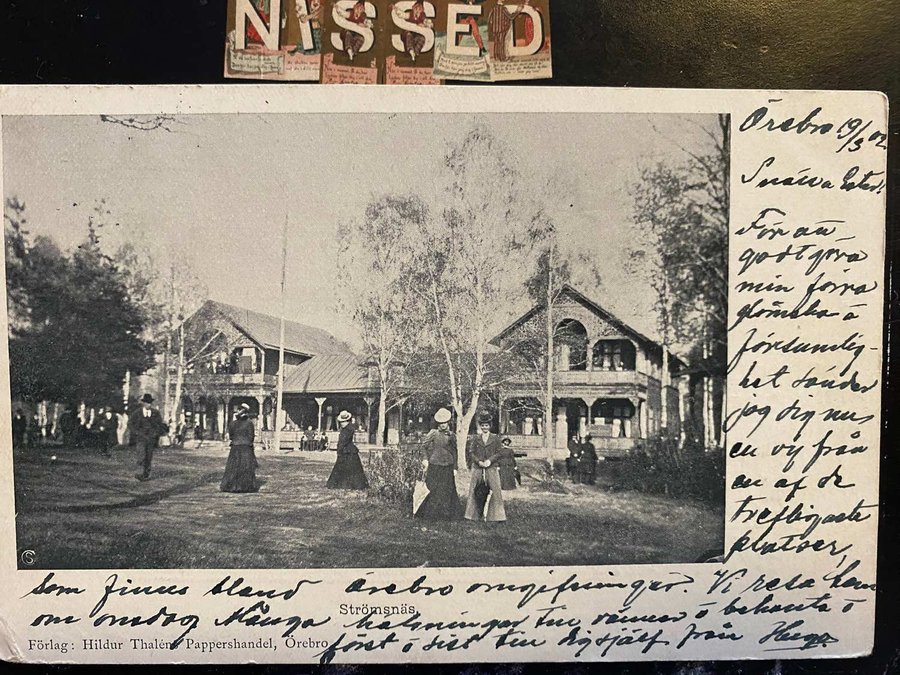 NISSED
Örebro 19/3 02
Snälla Ester!
För att
godtgöra
min förra
glömska o
försumlig-
het sänder
jag dig nu
en vy från
en af de
trefligaste
platser,
som finnes bland Örebro omgifningar. Vi resa hem
om onsdag Många hälsningar till vänner o bekanta o
först o sist till dig själf från Hugo.
Strömsnäs.
Förlag: Hildur Thaléns Pappershandel, Örebro